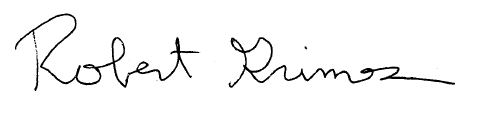 Robert Grimes